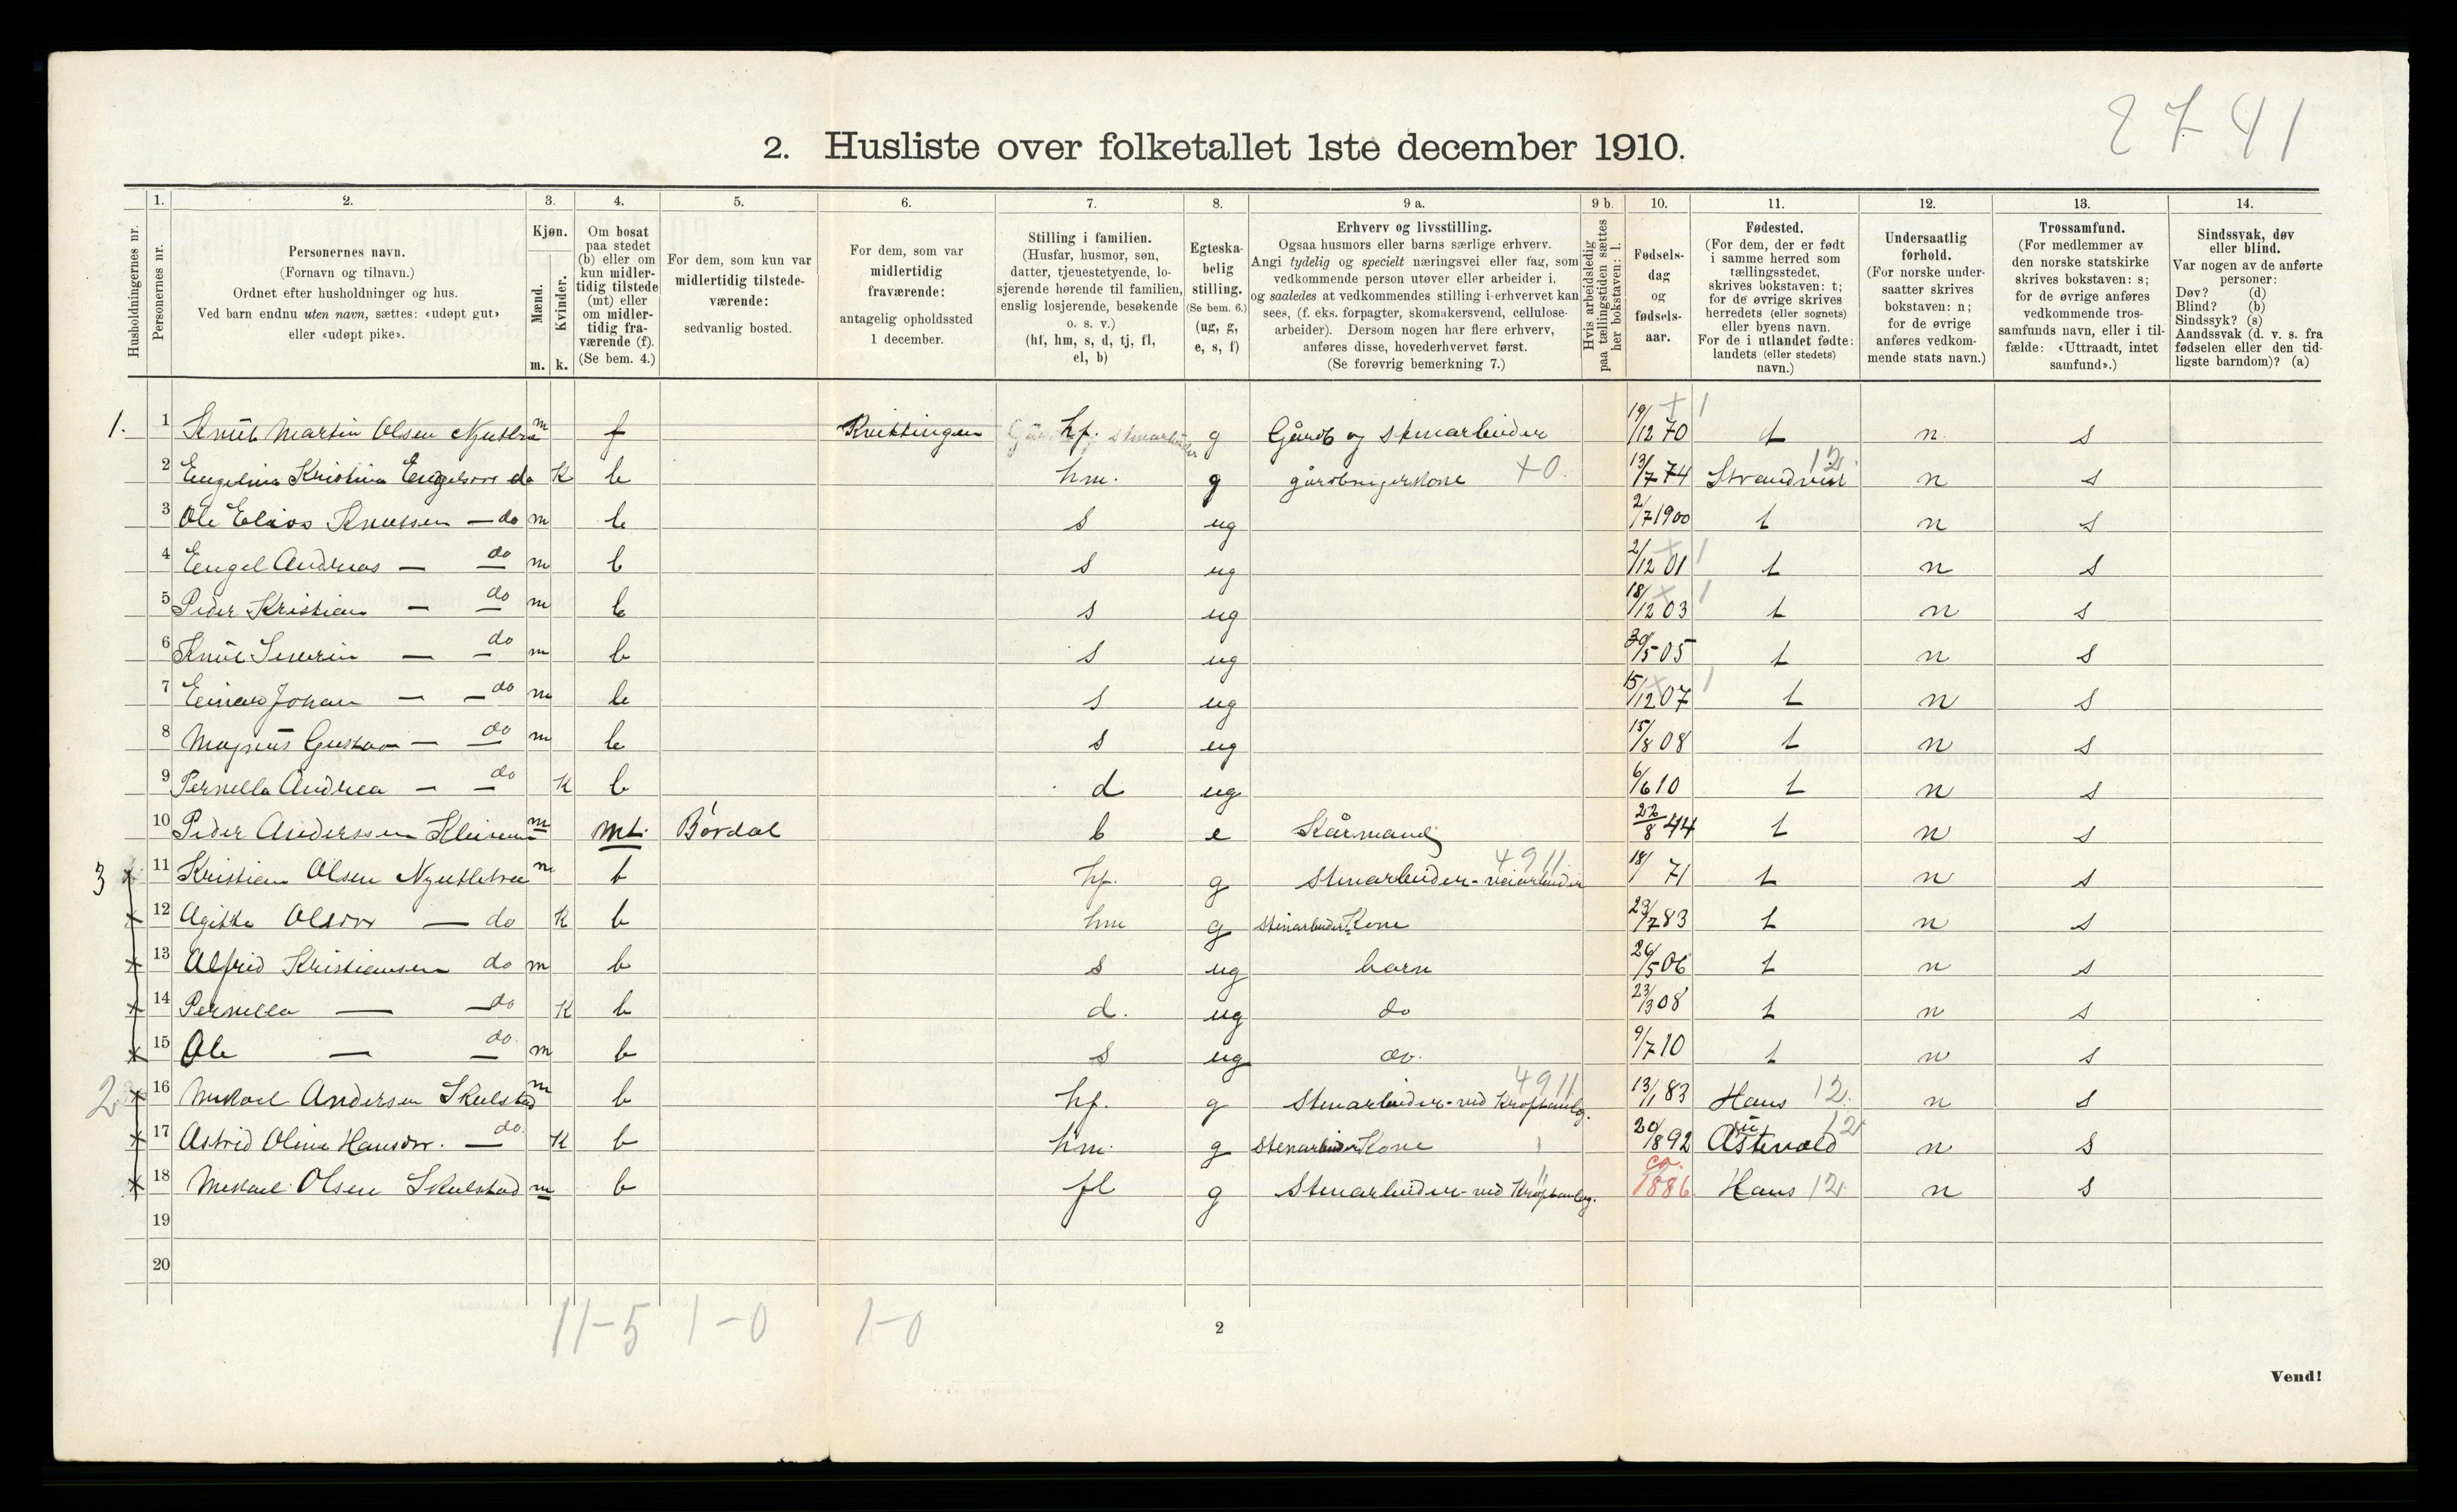 2741
2. Husliste over folketallet 1ste december 1910.
1. 2. 3. 4. 5. 6. 7. 8. 9 a. 9 b. 10. 11. 12. 13. 14.
Husholdningernes nr.
Personernes nr.
Personernes navn.
(Fornavn og tilnavn.)
Ordnet efter husholdninger og hus.
Ved barn endnu uten navn, sættes: «udøpt gut»
eller «udøpt pike».
Kjøn.
Mænd.
Kvinder.
m. k.
Om bosat
paa stedet
(b) eller om
kun midler-
tidig tilstede
(mt) eller
om midler-
tidig fra-
værende (f).
(Se bem. 4.)
For dem, som kun var
midlertidig tilstede-
værende:
sedvanlig bosted.
For dem, som var
midlertidig
fraværende:
antagelig opholdssted
1 december.
Stilling i familien.
(Husfar, husmor, søn,
datter, tjenestetyende, lo-
sjerende hørende til familien,
enslig losjerende, besøkende
o. s. v.)
(hf, hm, s, d, tj, fl,
el, b)
Egteska-
belig
stilling.
(Se bem. 6.)
(ug, g,
e, s, f)
Erhverv og livsstilling.
Ogsaa husmors eller barns særlige erhverv.
Angi tydelig og specielt næringsvei eller fag, som
vedkommende person utøver eller arbeider i,
og saaledes at vedkommendes stilling i erhvervet kan
sees, (f. eks. forpagter, skomakersvend, cellulose-
arbeider). Dersom nogen har flere erhverv,
anføres disse, hovederhvervet først.
(Se forøvrig bemerkning 7.)
Hvis arbeidsledig
paa tællingstiden sættes
her bokstaven: l.
Fødsels-
dag
og
fødsels-
aar.
Fødested.
(For dem, der er født
i samme herred som
tællingsstedet,
skrives bokstaven: t;
for de øvrige skrives
herredets (eller sognets)
eller byens navn.
For de i utlandet fødte:
landets (eller stedets)
navn.)
Undersaatlig
forhold.
(For norske under-
saatter skrives
bokstaven: n;
for de øvrige
anføres vedkom-
mende stats navn.)
Trossamfund.
(For medlemmer av
den norske statskirke
skrives bokstaven: s;
for de øvrige anføres
vedkommende tros-
samfunds navn, eller i til-
fælde: «Uttraadt, intet
samfund».)
Sindssvak, døv
eller blind.
Var nogen av de anførte
personer:
Døv? (d)
Blind? (b)
Sindssyk? (s)
Aandssvak (d. v. s. fra
fødselen eller den tid-
ligste barndom)? (a)
1. 1 Knut Martin Olsen m f hf. g Gårdb og stenarbeider 19/12 70 t n s
2 Engelina Kristina Engelsdr do K b hm. g gårdbrugerkone +0 13/7 74 Strandvik 12 n s
3 Ole Elias Knutsen — do m b s ug 2/7 1900 t n s
4 Engel Andreas — do m b s ug 2/12 01 t n s
5 Peder Kristian — do m b s ug 18/12 03 t n s
6 Knut Severin — do m b s ug 30/5 05 t n s
7 Einar Johan — do m b s ug 15/12 07 t n s
8 Magnus Gustav — do m b s ug 15/8 08 t n s
9 Pernella Andrea — do K b d ug 6/6 10 t n s
10 Peder Anderssen m mt. Børdal b e Kårmand 22/8 44 t n s
3 11 Kristian Olsen m b hf. g Stenarbeider - veiarbeider 4911 18/ 71 t n s
12 Agitha Olsdr — do K b hm g stenarbeider Kone 29/7 83 t n s
13 Alfrid Kristiansen do m b s ug barn 26/5 06 t n s
14 Pernella — do K b d. ug do 23/3 08 t n s
15 Ole — do m b s ug do. 9/7 10 t n s
2 16 Mikael Andersen Skulstad m b hf. g Stenarbeider - ved Kraftanlæg. 4911 13/1 83 Haus 12. n s
17 Astrid Oline Hansdr. — do. K b hm. g stenarbeider Kone 20/8 92 Østevold 12 n s
18 Mikael Olsen Skulstad m b fl g Stenarbeider - ved Kraftanlæg. ca. 1886 Haus 12 n s
19
20
11-5 1-0 1-0
2
Vend!